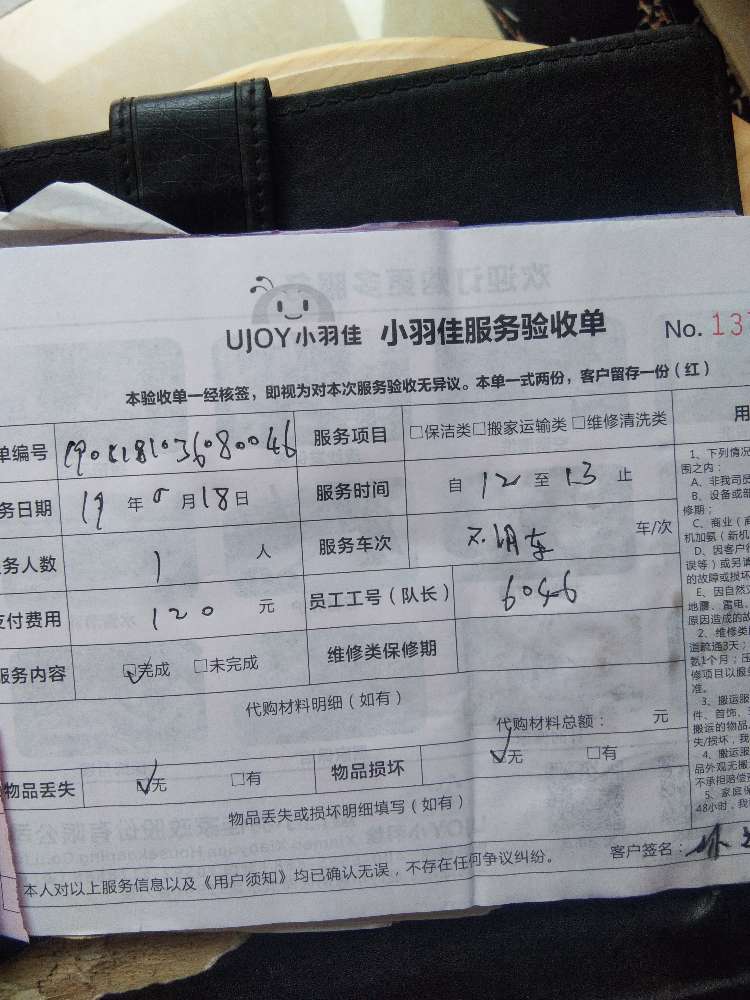 UJOY小羽佳 小羽佳服务验收单 No. 137
本验收单一经核签，即视为对本次服务验收无异议。本单一式两份，客户留存一份（红）
单编号 服务项目 □保洁类□搬家运输类□维修清洗类 用
务日期 19 年 月 18 日 服务时间 自 12 至 13 止
务人数 1 人 服务车次 不用车 车/次
支付费用 120 元 员工工号（队长） 6046
服务内容 ☑完成 □未完成 维修类保修期
代购材料明细（如有）
代购材料总额： 元
物品丢失 ☑无 □有 物品损坏 ☑无 □有
物品丢失或损坏明细填写（如有）
本人对以上服务信息以及《用户须知》均已确认无误，不存在任何争议纠纷。 客户签名：
1、下列情况
围之内：
A、非我司员
B、设备或部
修期；
C、商业（
机加氨（新机
D、因客户
误等）或另请
的故障或损坏
E、因自然灾
地震、雷电、
原因造成的故
2、维修类
道疏通3天；
氨1个月；压
修项目以服务
准。
3、搬运服
件、首饰、
搬运的物品
失/损坏，我
4、搬运服
品外观无搬
不承担赔偿
5、家庭保
48小时，我